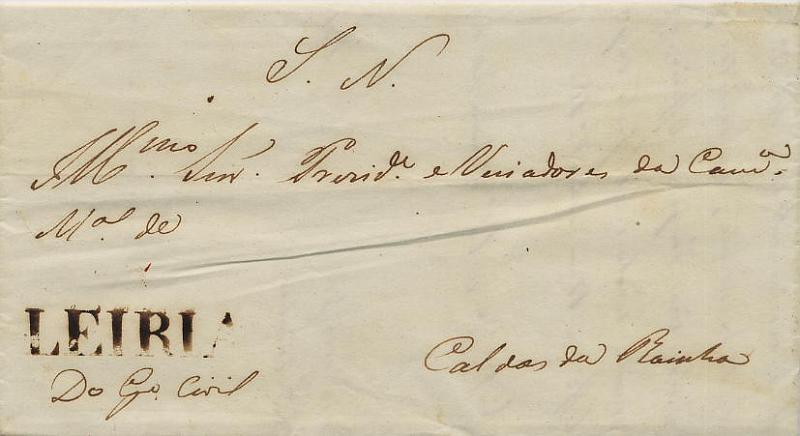 S. N.
Illmos. Snrs. Preside. e Veriadores da Camª.
Mal de
LEIRIA
Do Go. Civil
Caldas da Rainha